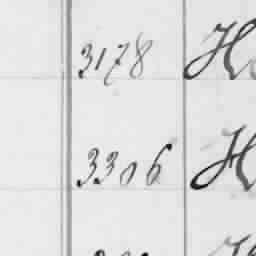 3178 H
3306 H